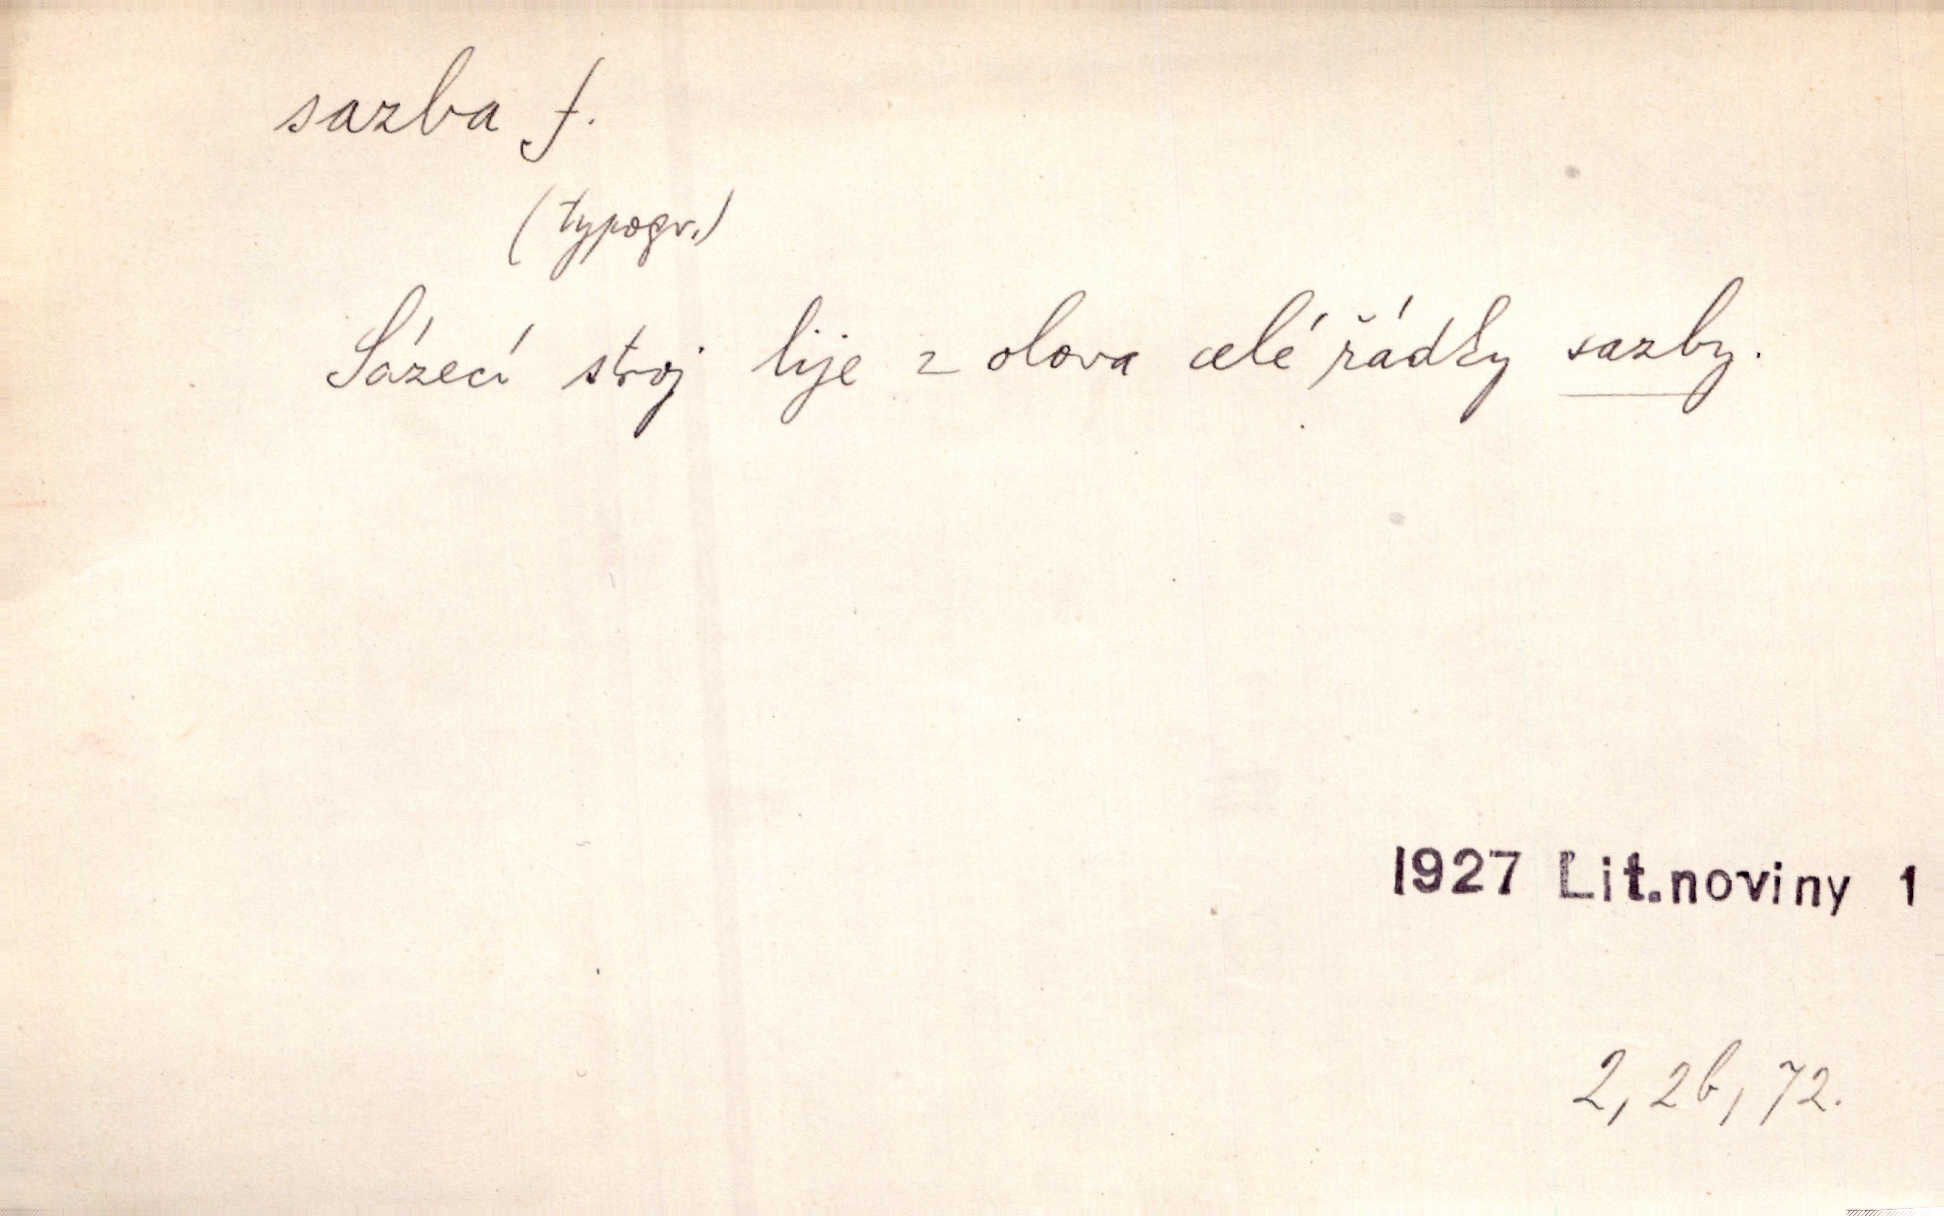 sazba f.
(typogr.)
Sázecí stroj lije z olova celé řádky sazby.
1927 Lit.noviny 1
2, 2b, 72.